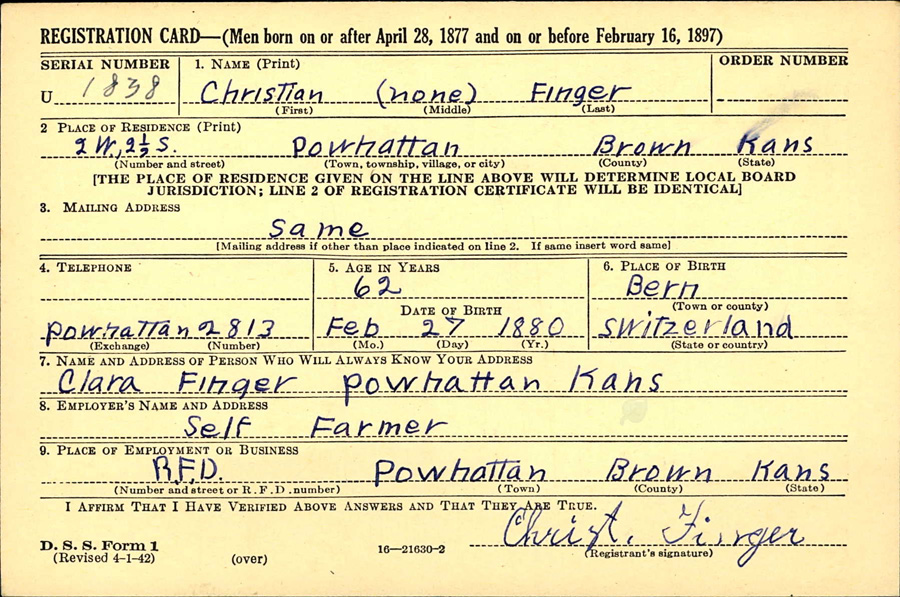 REGISTRATION CARD—(Men born on or after April 28, 1877 and on or before February 16, 1897)
SERIAL NUMBER 1. NAME (Print) ORDER NUMBER
U 1838 Christian (none) Finger
(First) (Middle) (Last)
2 PLACE OF RESIDENCE (Print)
2 W, 2½ S. Powhattan Brown Kans
(Number and street) (Town, township, village, or city) (County) (State)
[THE PLACE OF RESIDENCE GIVEN ON THE LINE ABOVE WILL DETERMINE LOCAL BOARD
JURISDICTION; LINE 2 OF REGISTRATION CERTIFICATE WILL BE IDENTICAL]
3. MAILING ADDRESS
Same
[Mailing address if other than place indicated on line 2. If same insert word same]
4. TELEPHONE 5. AGE IN YEARS 6. PLACE OF BIRTH
62 Bern
DATE OF BIRTH (Town or county)
Powhattan 2813 Feb 27 1880 Switzerland
(Exchange) (Number) (Mo.) (Day) (Yr.) (State or country)
7. NAME AND ADDRESS OF PERSON WHO WILL ALWAYS KNOW YOUR ADDRESS
Clara Finger Powhattan Kans
8. EMPLOYER'S NAME AND ADDRESS
Self Farmer
9. PLACE OF EMPLOYMENT OR BUSINESS
R.F.D. Powhattan Brown Kans
(Number and street or R. F. D. number) (Town) (County) (State)
I AFFIRM THAT I HAVE VERIFIED ABOVE ANSWERS AND THAT THEY ARE TRUE.
Christ. Finger
D. S. S. Form 1 16—21630-2 (Registrant's signature)
(Revised 4-1-42) (over)